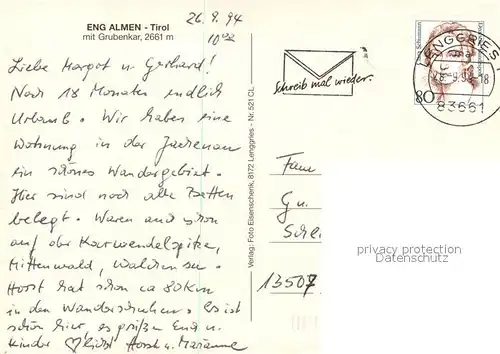 ENG ALMEN - Tirol
mit Grubenkar, 2661 m
26.9.94
10⁰⁰
Liebe Margot u. Gerhard!
Nach 18 Monaten endlich
Urlaub. Wir haben eine
Wohnung in der Jachenau
ein schönes Wandergebiet.
Hier sind noch alle Betten
belegt. Waren auch schon
auf der Karwendelspitze,
Mittenwald, Walchensee.
Horst hat schon ca 80 km
in den Wanderschuhen. Es ist
schön hier, es grüßen Euch u.
Kinder herzlichst Horst u. Marianne
Verlag: Foto Eisenschenk, 8172 Lenggries - Nr. 521 CL
Schreib mal wieder.
80
LENGGRIES
-9.94-18
83661
Fam
Gu
Schl
13507
privacy protection
Datenschutz